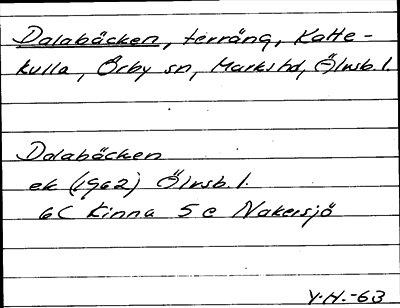 Dalabäcken, terräng, Katte-
kulla, Örby sn, Marks hd, Älvsb. l.
Dalabäcken
ek (1962) Älvsb. l.
6C Kinna 5 e Nakersjö
Y.H.-63